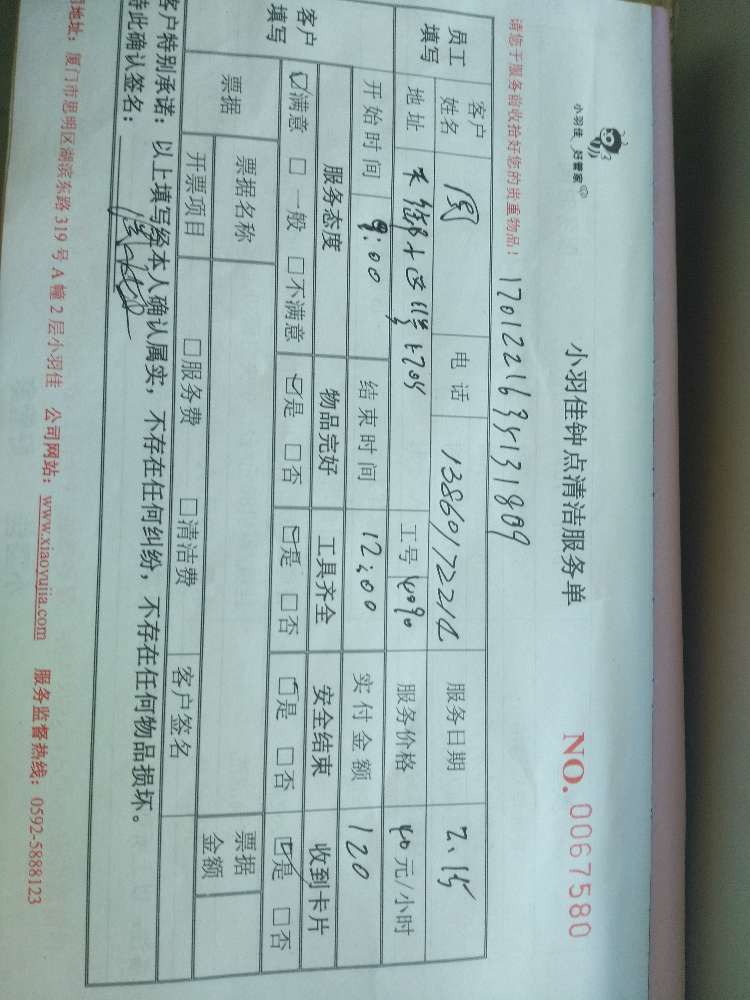 小羽佳 好管家
小羽佳钟点清洁服务单
NO. 0067580
请您于服务前收拾好您的贵重物品！
员工填写 客户姓名 电话 服务日期 2.15
地址 工号 服务价格 40元/小时
开始时间 9:00 结束时间 12:00 实付金额 120
客户填写 服务态度 物品完好 工具齐全 安全结束 收到卡片
☑满意 □一般 □不满意 ☑是 □否 ☑是 □否 ☑是 □否 ☑是 □否
票据 票据名称 票据金额
开票项目 □服务费 □清洁费 客户签名
客户特别承诺：以上填写经本人确认属实，不存在任何纠纷，不存在任何物品损坏。
特此确认签名：
司地址：厦门市思明区湖滨东路 319 号 A 幢 2 层小羽佳 公司网站：www.xiaoyujia.com 服务监督热线：0592-5888123